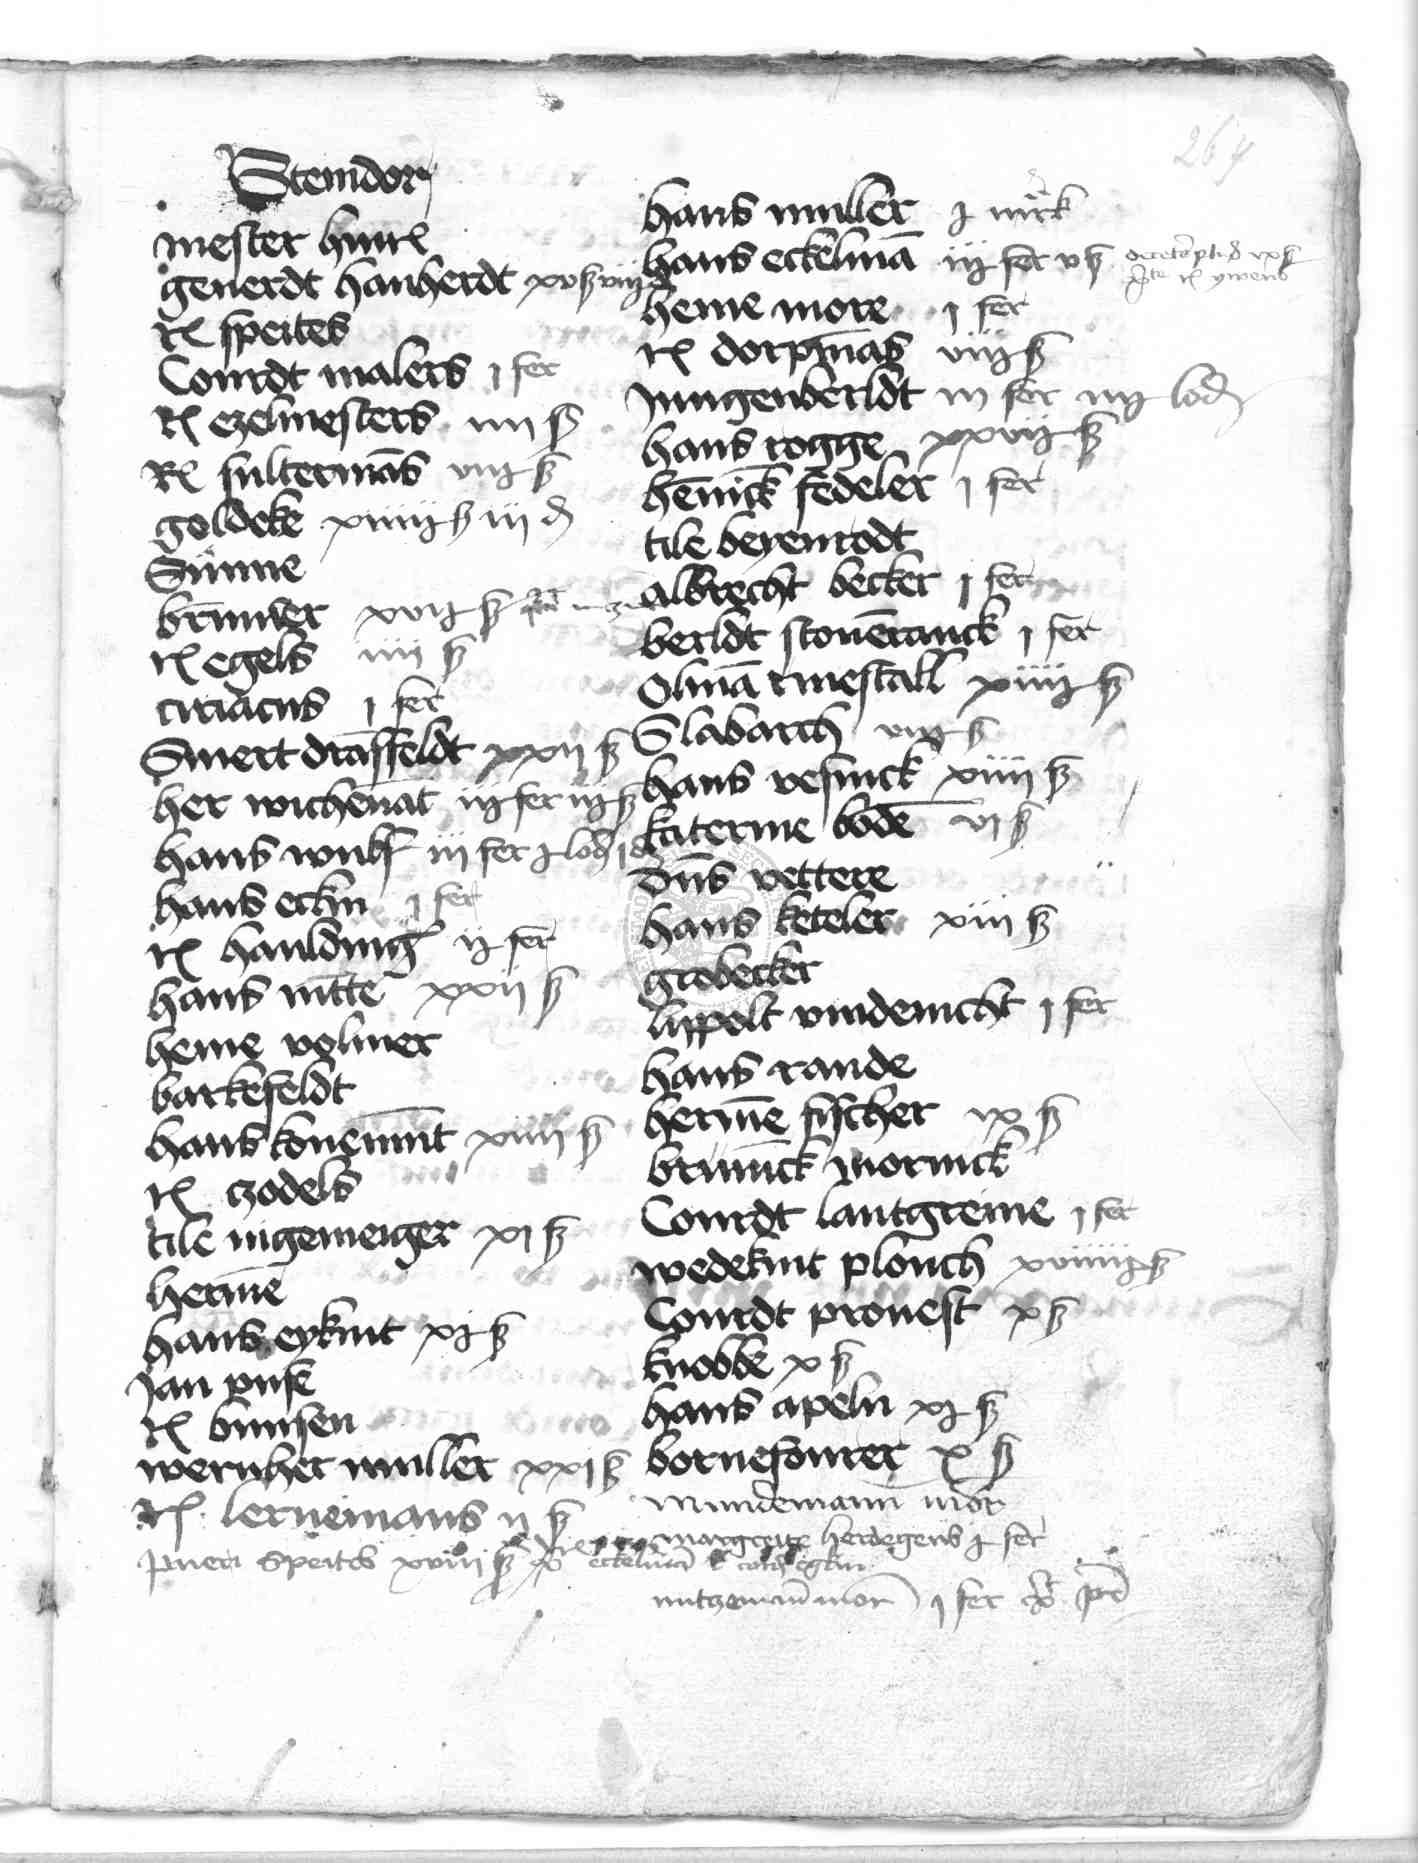 Stemdor
mester hinr
geuerdt hanherdt xvß viiij ₰
rel speites
Courdt malers j fer
Rel ezelmesters iiii ß
Rel sultermās viij ß
goldeke xiiiij ß iij ₰
Sunne
brunner xvij ß
rel egels iiii ß
ciriacus j fer
Smert drāssfeldt xxij ß
her wichenāt iij fer iij ß
hans wulf iij fer j lod j ₰
hans eckn j fer
rel hauldung ij fer
hans witte xxij ß
heine volmer
barkefeldt
hans konemūt xiiij ß
rel czodels
tile nigemeiger xj ß
hermē
hans eykint xj ß
Jan puse
rel bunsen
wernher muller xxj ß
Rel lernemans ij ß
pueri Speites xviij ß
hans muller j mrck
hans eckelmā iij fer v ß
heine more j fer
rel dorpmās viij ß
Jungenberldt iij fer iij lod
hans rogge xxvij ß
hēnick fedeler j fer
tile beyenrodt
albrecht becker j fer
berldt stouēranck j fer
Olmā rmestall xiiij ß
Slabarch viij ß
hans vesnick xiiij ß
katerine bode vj ß
dns vettere
hans keteler xiij ß
grobecker
lippolt vmdenicht j fer
hans rande
hermē fischer ix ß
brunick mornick
Courdt lantgreine j fer
wedekint plouch xviiij ß
Courdt prouest x ß
knobbe x ß
hans apeln xj ß
bornefourer x ß
Mundemann mor
margrete herdegens j fer
j fer